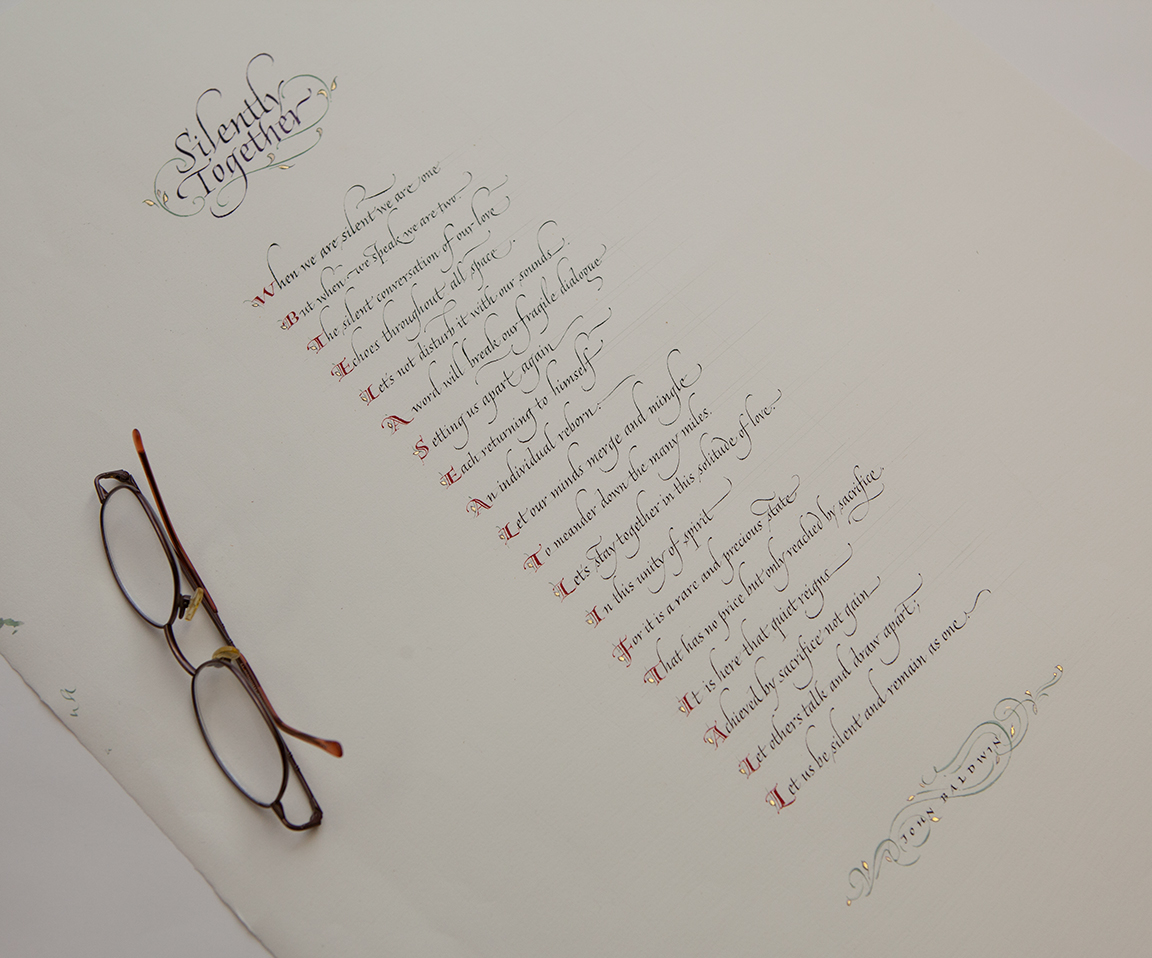 Silently
Together
When we are silent we are one
But when we speak we are two
The silent conversation of our love
Echoes throughout all space.
Let's not disturb it with our sounds.
A word will break our fragile dialogue
Setting us apart again
Each returning to himself
An individual reborn.
Let our minds merge and mingle
To meander down the many miles.
Let's stay together in this solitude of love.
In this unity of spirit
For it is a rare and precious state
That has no price but only reached by sacrifice
It is here that quiet reigns
Achieved by sacrifice not gain
Let others talk and draw apart;
Let us be silent and remain as one.
JOHN BALDWIN